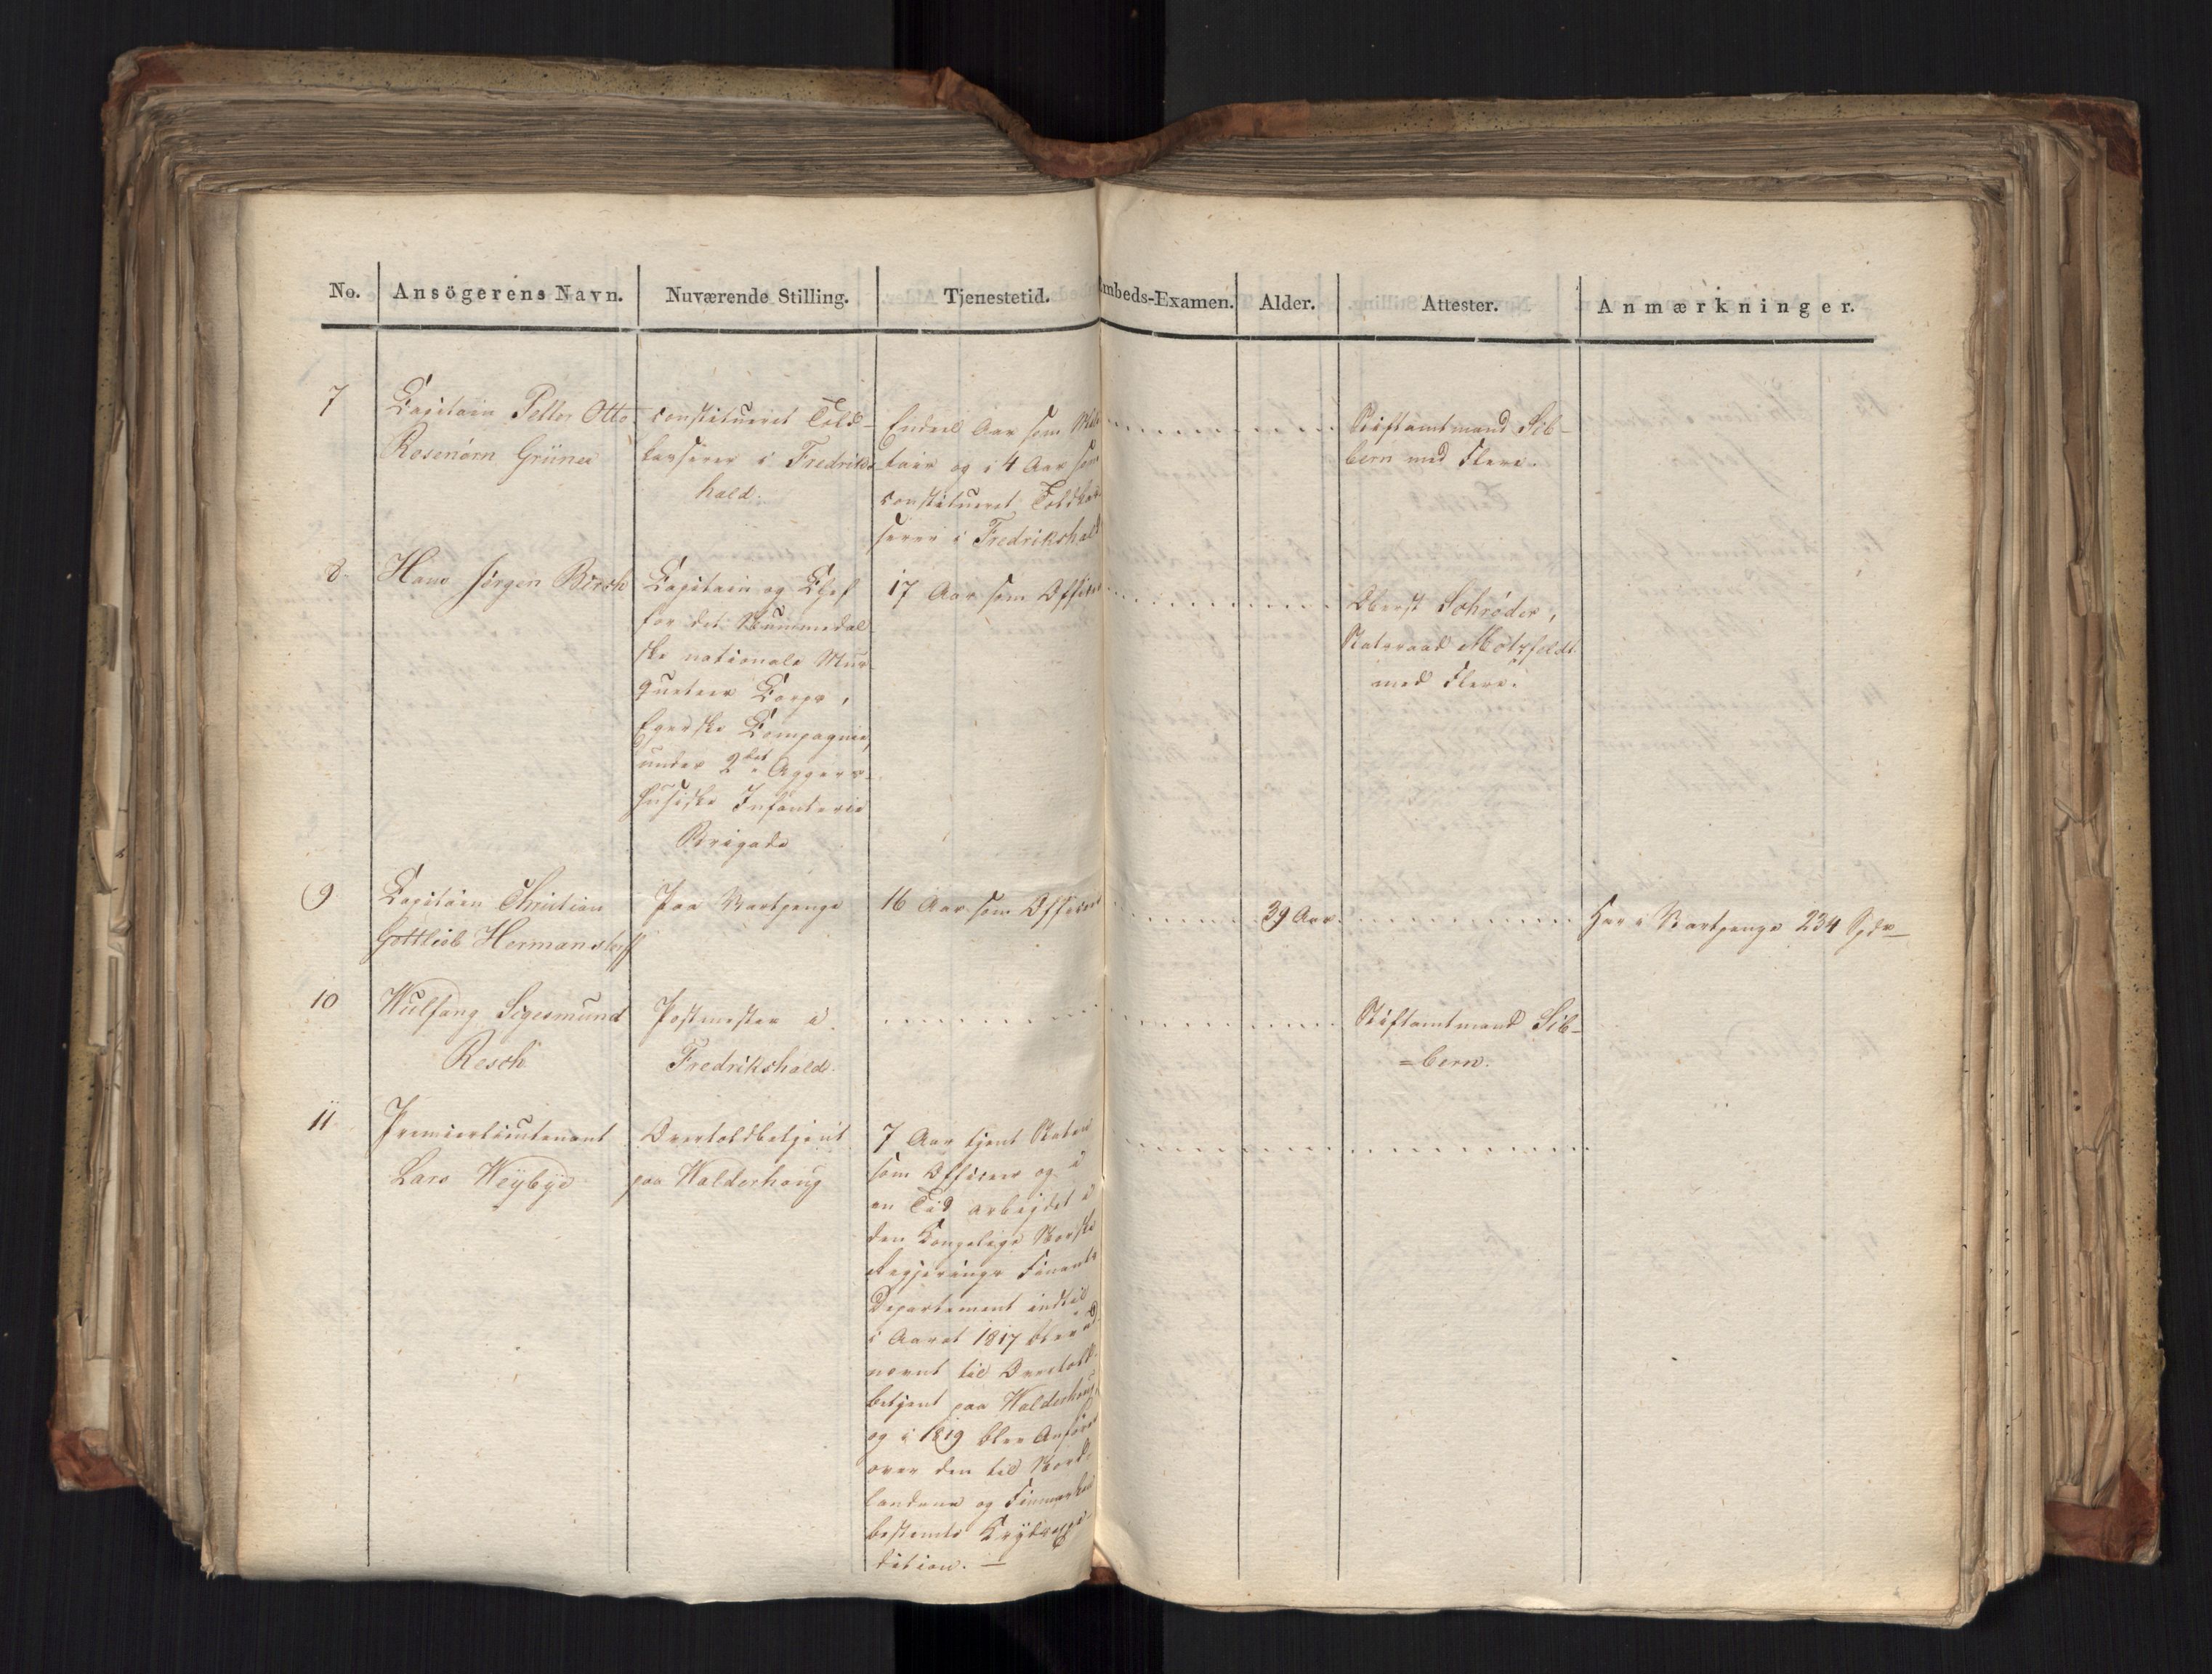 No. Ansögerens Navn. Nuværende Stilling. Tjenestetid. mbeds-Examen. Alder. Attester. Anmærkninger.
7 Capitain Petter Otto
Rosenörn Grüner
constitueret Told-
kasserer i Fredriks-
hald.
Endeel Aar som Mili-
tair og i 4 Aar som
constitueret Toldkas-
serer i Fredrikshald
Stiftamtmand Sib-
bern med Flere.
8. Hans Jörgen Birch
Capitain og Chef
for det Nummedal-
ske nationale Mus-
queteer Corps,
Egerske Compagnie,
under 2det Aggers-
husiske Infanterie
Brigade
17 Aar som Officer
Oberst Schröder,
Statsraad Motzfeldt
med Flere.
9 Capitain Christian
Gottlieb Hermansdorff
Paa Vartpenge
16 Aar som Officer
39 Aar.
Har i Vartpenge 234 Spdr
10 Wulfang Sigesmund
Resch
Postmester i
Fredrikshald.
Stiftamtmand Sib-
=bern.
11 Premierlieutenant
Lars Weybye
Overtoldbetjent
paa Walderhoug
7 Aar tjent Staten
som Officer og i
en Tid arbejdet i
den Kongelige Norske
Regjerings Finants
Departement indtil
i Aaret 1817 blev ud-
nævnt til Overtold-
betjent paa Walderhoug,
og i 1819 blev Anförer
over den til Nord-
landene og Finmarken
bestemte Krydsexpe-
dition. —